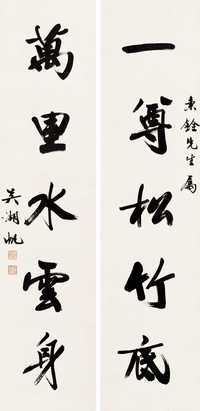 一尊松竹底
秉銓先生属
萬里水雲身
吳湖帆